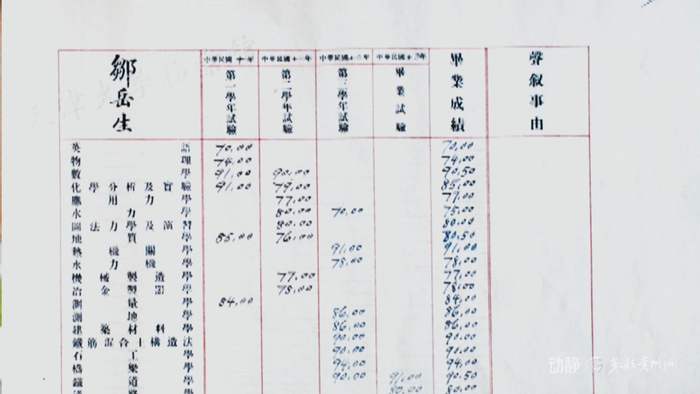 鄒岳生
中華民國十一年 中華民國十二年 中華民國十三年 中華民國十三年
第一學年試驗 第二學年試驗 第三學年試驗 畢業試驗 畢業成績 聲叙事由
英語 70.00 70.00
物理 74.00 74.00
數學 91.00 90.00 90.50
化學分析及實驗 91.00 79.00 85.00
應用力學 77.00 77.00
水力學 80.00 70.00 75.00
圖法力學及演習 80.00 80.00
地質學 85.00 76.00 80.50
熱機關學 91.00 91.00
水力機學 78.00 78.00
機械製造學 77.00 77.00
冶金製器學 78.00 78.00
測量學 84.00 84.00
測地學 86.00 86.00
建築材料學 86.00 86.00
鐵筋混合土構造法 90.00 90.00
石工學 90.00 90.00
橋梁學 94.00 94.00
鐵道學 90.00 91.00 90.50
80.00 80.00
动静